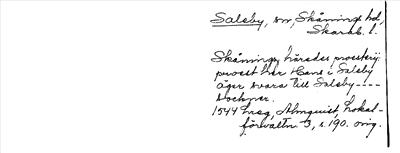 Salsby, sn, Skånings hd,
Skarab. l.
Skånings härades prosterij:
prost her Hans i Salsby
äger svara till Salsby ----
sockner.
1544 hreg, Almquist, Lokal-
förvaltn. 3, s. 190. orig.